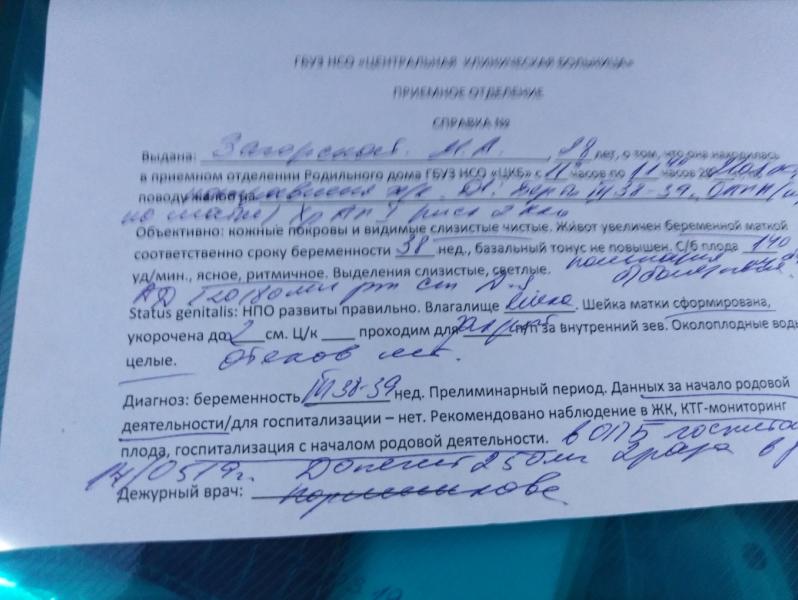 ГБУЗ НСО «ЦЕНТРАЛЬНАЯ КЛИНИЧЕСКАЯ БОЛЬНИЦА»
ПРИЕМНОЕ ОТДЕЛЕНИЕ
СПРАВКА №
Выдана: Загорской М.А. лет, о том, что она находилась
в приемном отделении Родильного дома ГБУЗ НСО «ЦКБ» с 11 часов по 11 часов 20
поводу жалоб на
Объективно: кожные покровы и видимые слизистые чистые. Живот увеличен беременной маткой
соответственно сроку беременности 38 нед., базальный тонус не повышен. С/б плода 140
уд/мин., ясное, ритмичное. Выделения слизистые, светлые. пальпация
АД рт ст
Status genitalis: НПО развиты правильно. Влагалище узкое. Шейка матки сформирована,
укорочена до 2 см. Ц/к проходим для закрыт п/п за внутренний зев. Околоплодные воды
целые. отеков нет.
Диагноз: беременность III 38-39 нед. Прелиминарный период. Данных за начало родовой
деятельности/для госпитализации – нет. Рекомендовано наблюдение в ЖК, КТГ-мониторинг
плода, госпитализация с началом родовой деятельности. в ОПБ
Допегит 250мг 2 раза в
Дежурный врач: